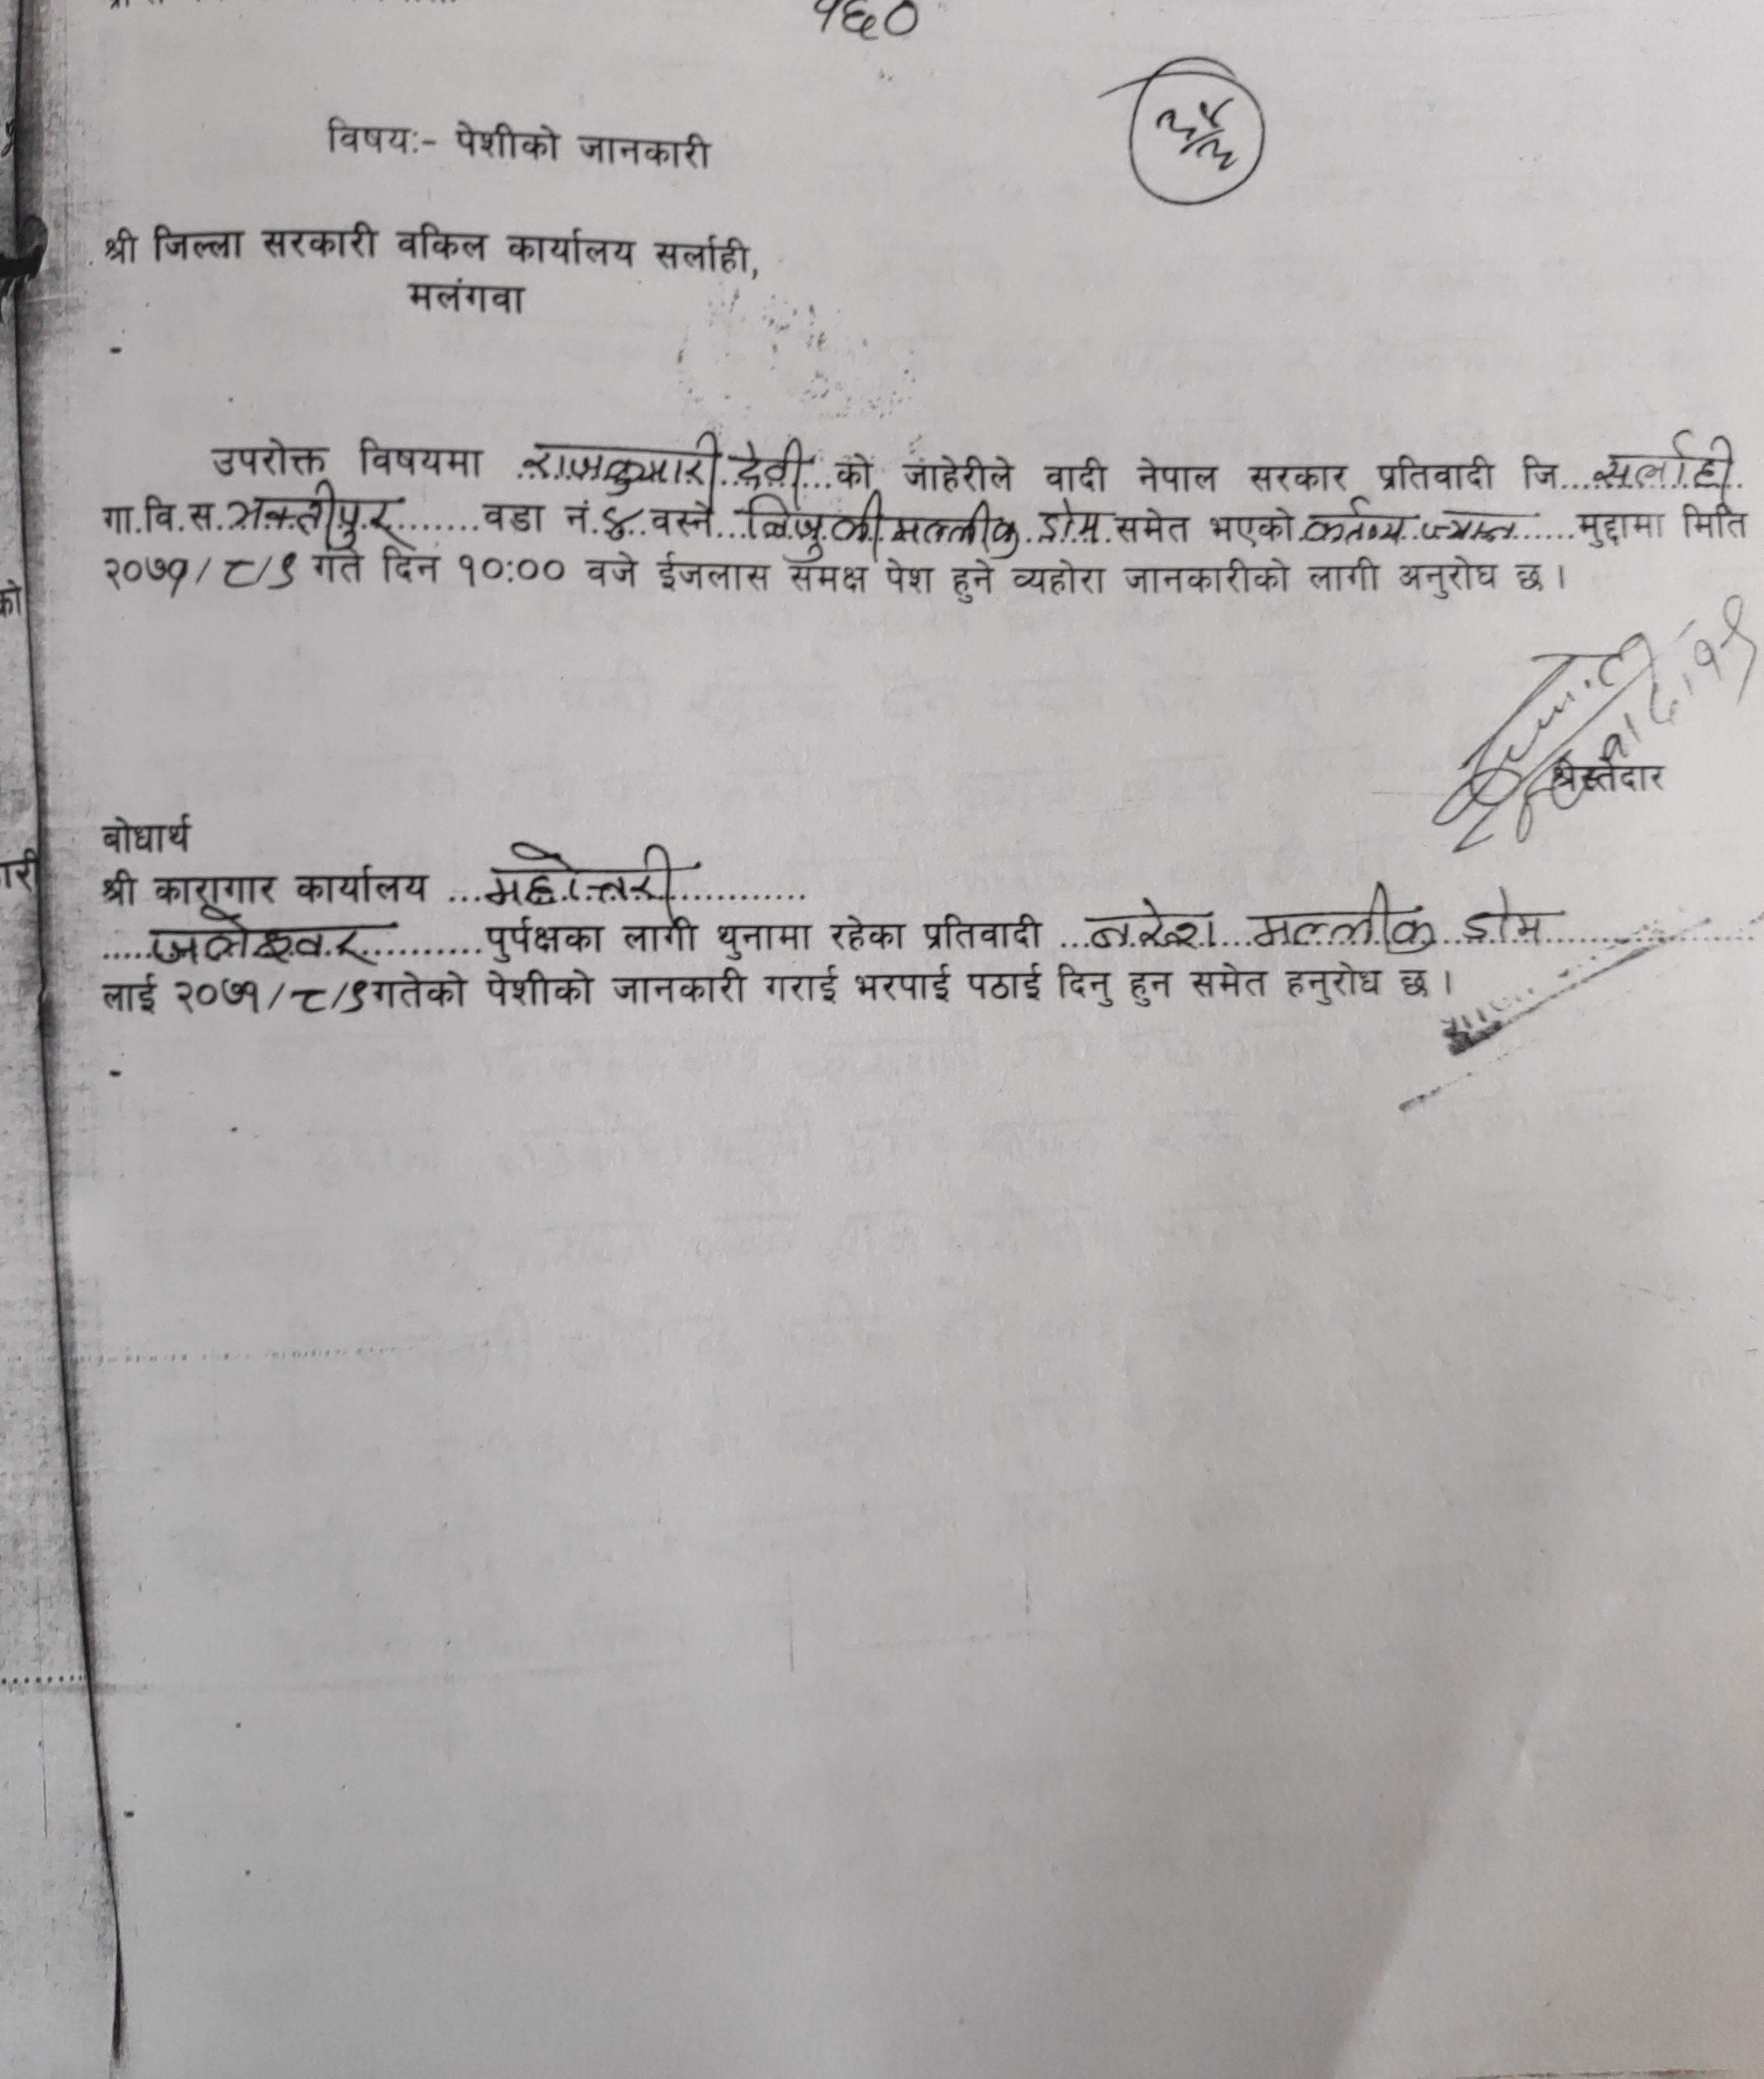 १६०
विषय:- पेशीको जानकारी
श्री जिल्ला सरकारी वकिल कार्यालय सर्लाही,
मलंगवा
उपरोक्त विषयमा राजकुमारी देवी को जाहेरीले वादी नेपाल सरकार प्रतिवादी जि...सर्लाही
गा.वि.स.भक्तीपुर........वडा नं.४..वस्ने...बिजुली मल्लीक डोम समेत भएको कर्तव्य ज्यान......मुद्दामा मिति
२०७१/८/९ गते दिन १०:०० वजे ईजलास समक्ष पेश हुने व्यहोरा जानकारीको लागी अनुरोध छ ।
श्रेस्तेदार
बोधार्थ
श्री कारागार कार्यालय ...महोत्तरी............
.....जलेश्वर..........पुर्पक्षका लागी थुनामा रहेका प्रतिवादी ...नरेश मल्लीक डोम............
लाई २०७१/८/९गतेको पेशीको जानकारी गराई भरपाई पठाई दिनु हुन समेत हनुरोध छ ।